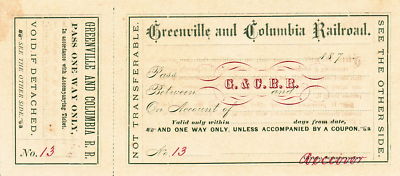 VOID IF DETACHED.
SEE THE OTHER SIDE.
PASS ONE WAY ONLY,
In accordance with Accompanying Ticket.
GREENVILLE AND COLUMBIA R. R.
No. 13
NOT TRANSFERABLE.
Greenville and Columbia Railroad.
187
Pass
G. & C. R. R.
Between and
On Account of
Valid only within days from date,
AND ONE WAY ONLY, UNLESS ACCOMPANIED BY A COUPON.
No. 13
Receiver
SEE THE OTHER SIDE.